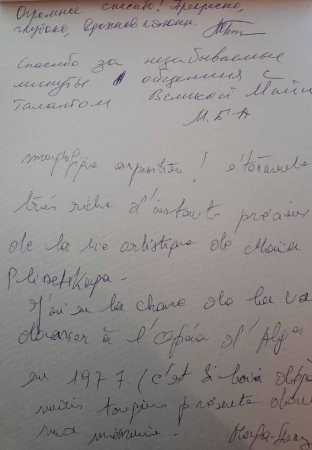 Огромное спасибо! Прекрасно,
глубоко, вдохновлённо.
Спасибо за незабываемые
минуты общения с
талантом Великой Майи
М.Б.А
exposition ! étonnante
très riche d'instants précieux
de la vie artistique de Maïa
Plissetskaya.
J'ai eu la chance de la voir
danser à l'Opéra d'Alger
en 1977. (c'est si loin déjà
mais toujours présente dans
ma mémoire.